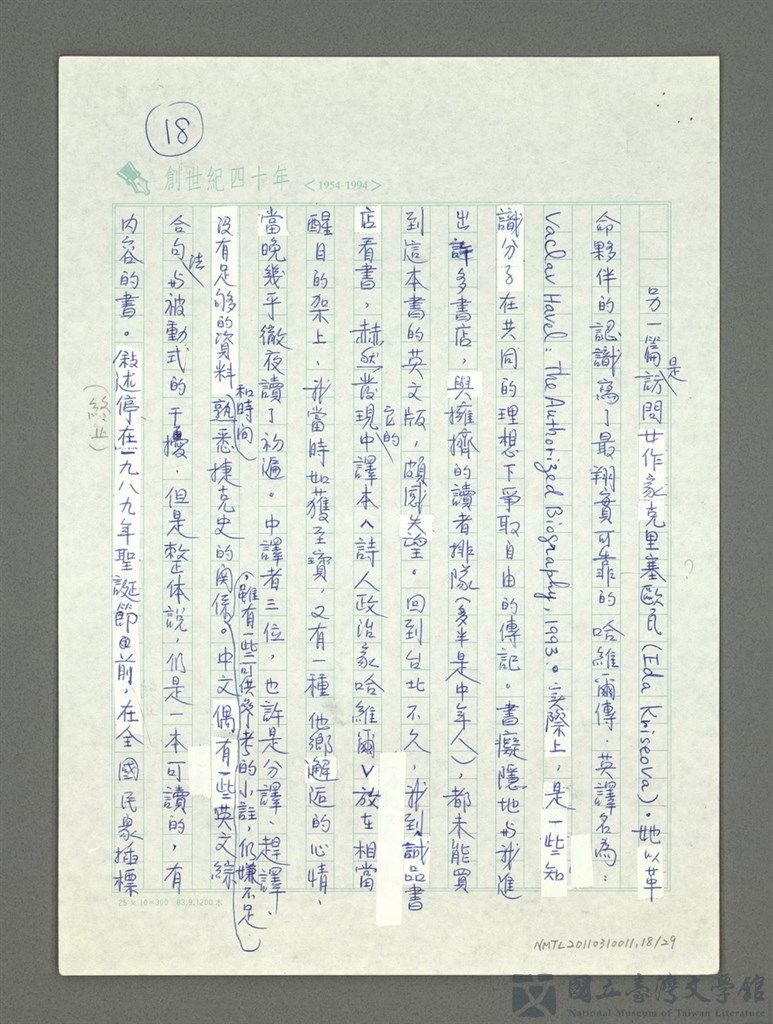 18
創世紀四十年 <1954-1994>
另一篇是訪問女作家克里塞歐瓦(Eda Kriseova)。她以革
命夥伴的認識寫了最翔實可靠的哈維爾傳.英譯名為:
Vaclav Havel: The Authorized Biography, 1993。實際上,是一些知
識分子在共同的理想下爭取自由的傳記。書癡隱地与我進
出許多書店,與擁擠的讀者排隊(多半是中年人),都未能買
到這本書的英文版,頗感失望。回到台北不久,我到誠品書
店看書,赫然發現它的中譯本<詩人政治家哈維爾>放在相當
醒目的架上、我當時如獲至寶,又有一種他鄉邂逅的心情、
當晚幾乎徹夜讀了初遍。中譯者三位,也許是分譯、趕譯、
沒有足够的資料和時間熟悉捷克史的関係。,雖有一些可供參考的小註,仍嫌不足中文偶有一些英文綜
合句法与被動式的干擾.但是整体說,仍是一本可讀的,有
內容的書。敘述停在一九八九年聖誕節前,在全國民眾插標
(終止)
?
25×12=300 83.9.1200本
NMTL20110310011,18/29
國立臺灣文學館
National Museum of Taiwan Literature